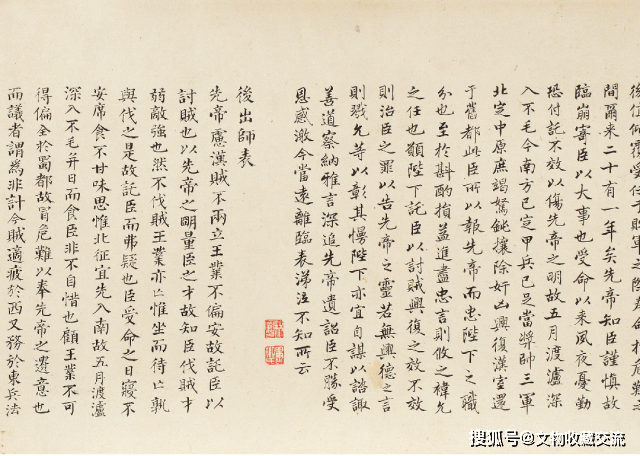 後值傾覆受任於敗軍之際奉命於危難之
間爾來二十有一年矣先帝知臣謹慎故
臨崩寄臣以大事也受命以來夙夜憂勤
恐付託不效以傷先帝之明故五月渡瀘深
入不毛今南方已定甲兵已足當獎帥三軍
北定中原庶竭駑鈍攘除奸凶興復漢室還
于舊都此臣所以報先帝而忠陛下之職
分也至於斟酌損益進盡忠言則攸之禕允
之任也願陛下託臣以討賊興復之效不效
則治臣之罪以告先帝之靈若無興德之言
則戮允等以彰其慢陛下亦宜自謀以諮諏
善道察納雅言深追先帝遺詔臣不勝受
恩感激今當遠離臨表涕泣不知所云
後出師表
先帝慮漢賊不兩立王業不偏安故託臣以
討賊也以先帝之明量臣之才故知臣伐賊才
弱敵強也然不伐賊王業亦亡惟坐而待亡孰
與伐之是故託臣而弗疑也臣受命之日寢不
安席食不甘味思惟北征宜先入南故五月渡瀘
深入不毛并日而食臣非不自惜也顧王業不可
得偏全於蜀都故冒危難以奉先帝之遺意也
而議者謂為非計今賊適疲於西又務於東兵法
搜狐号@文物收藏交流